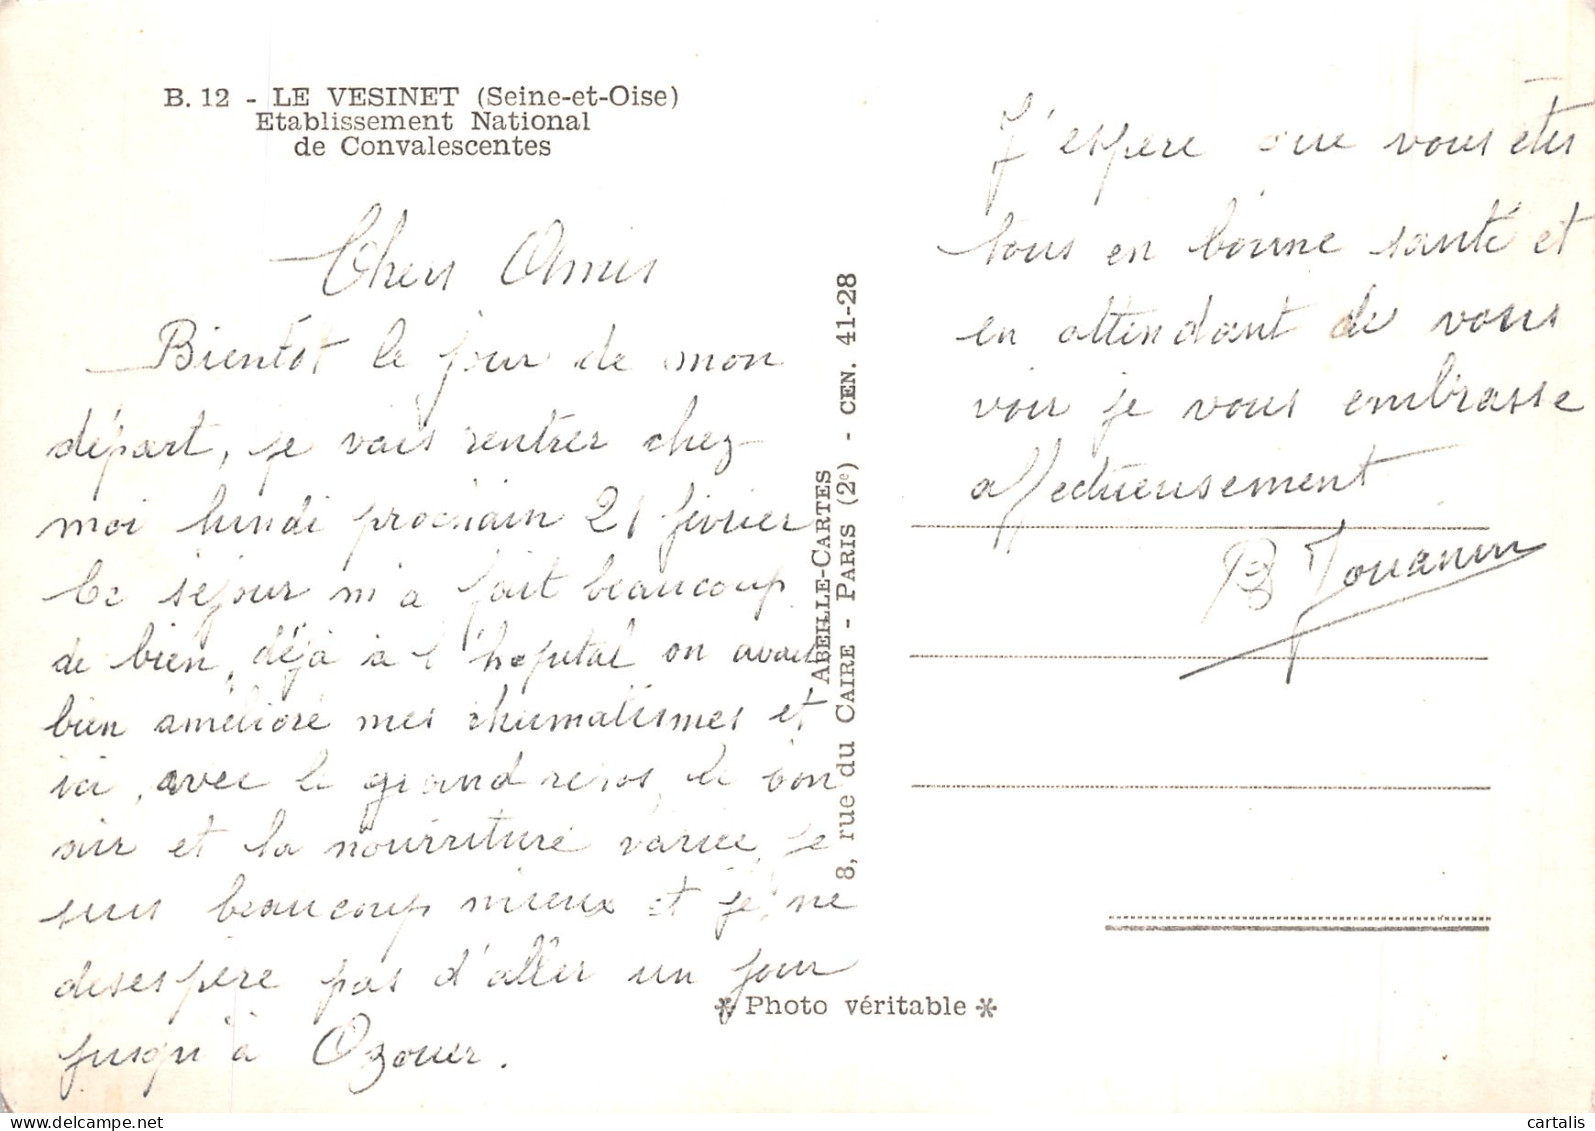 B. 12 - LE VESINET (Seine-et-Oise)
Etablissement National
de Convalescentes
Chers Amis
Bientôt le jour de mon
départ, je vais rentrer chez
moi lundi prochain 21 février
Ce séjour m'a fait beaucoup
de bien, déjà à l'hopital on avait
bien amélioré mes rhumatismes et
ici, avec le grand repos, le bon
air et la nourriture variée, je
suis beaucoup mieux et je ne
desespère pas d'aller un jour
jusqu'à Ozouer.
J'espère que vous êtes
tous en bonne santé et
en attendant de vous
voir je vous embrasse
affectueusement
B Jouanin
ABEILLE-CARTES
8, rue du CAIRE - PARIS (2e) - CEN. 41-28
* Photo véritable *
www.delcampe.net
cartalis